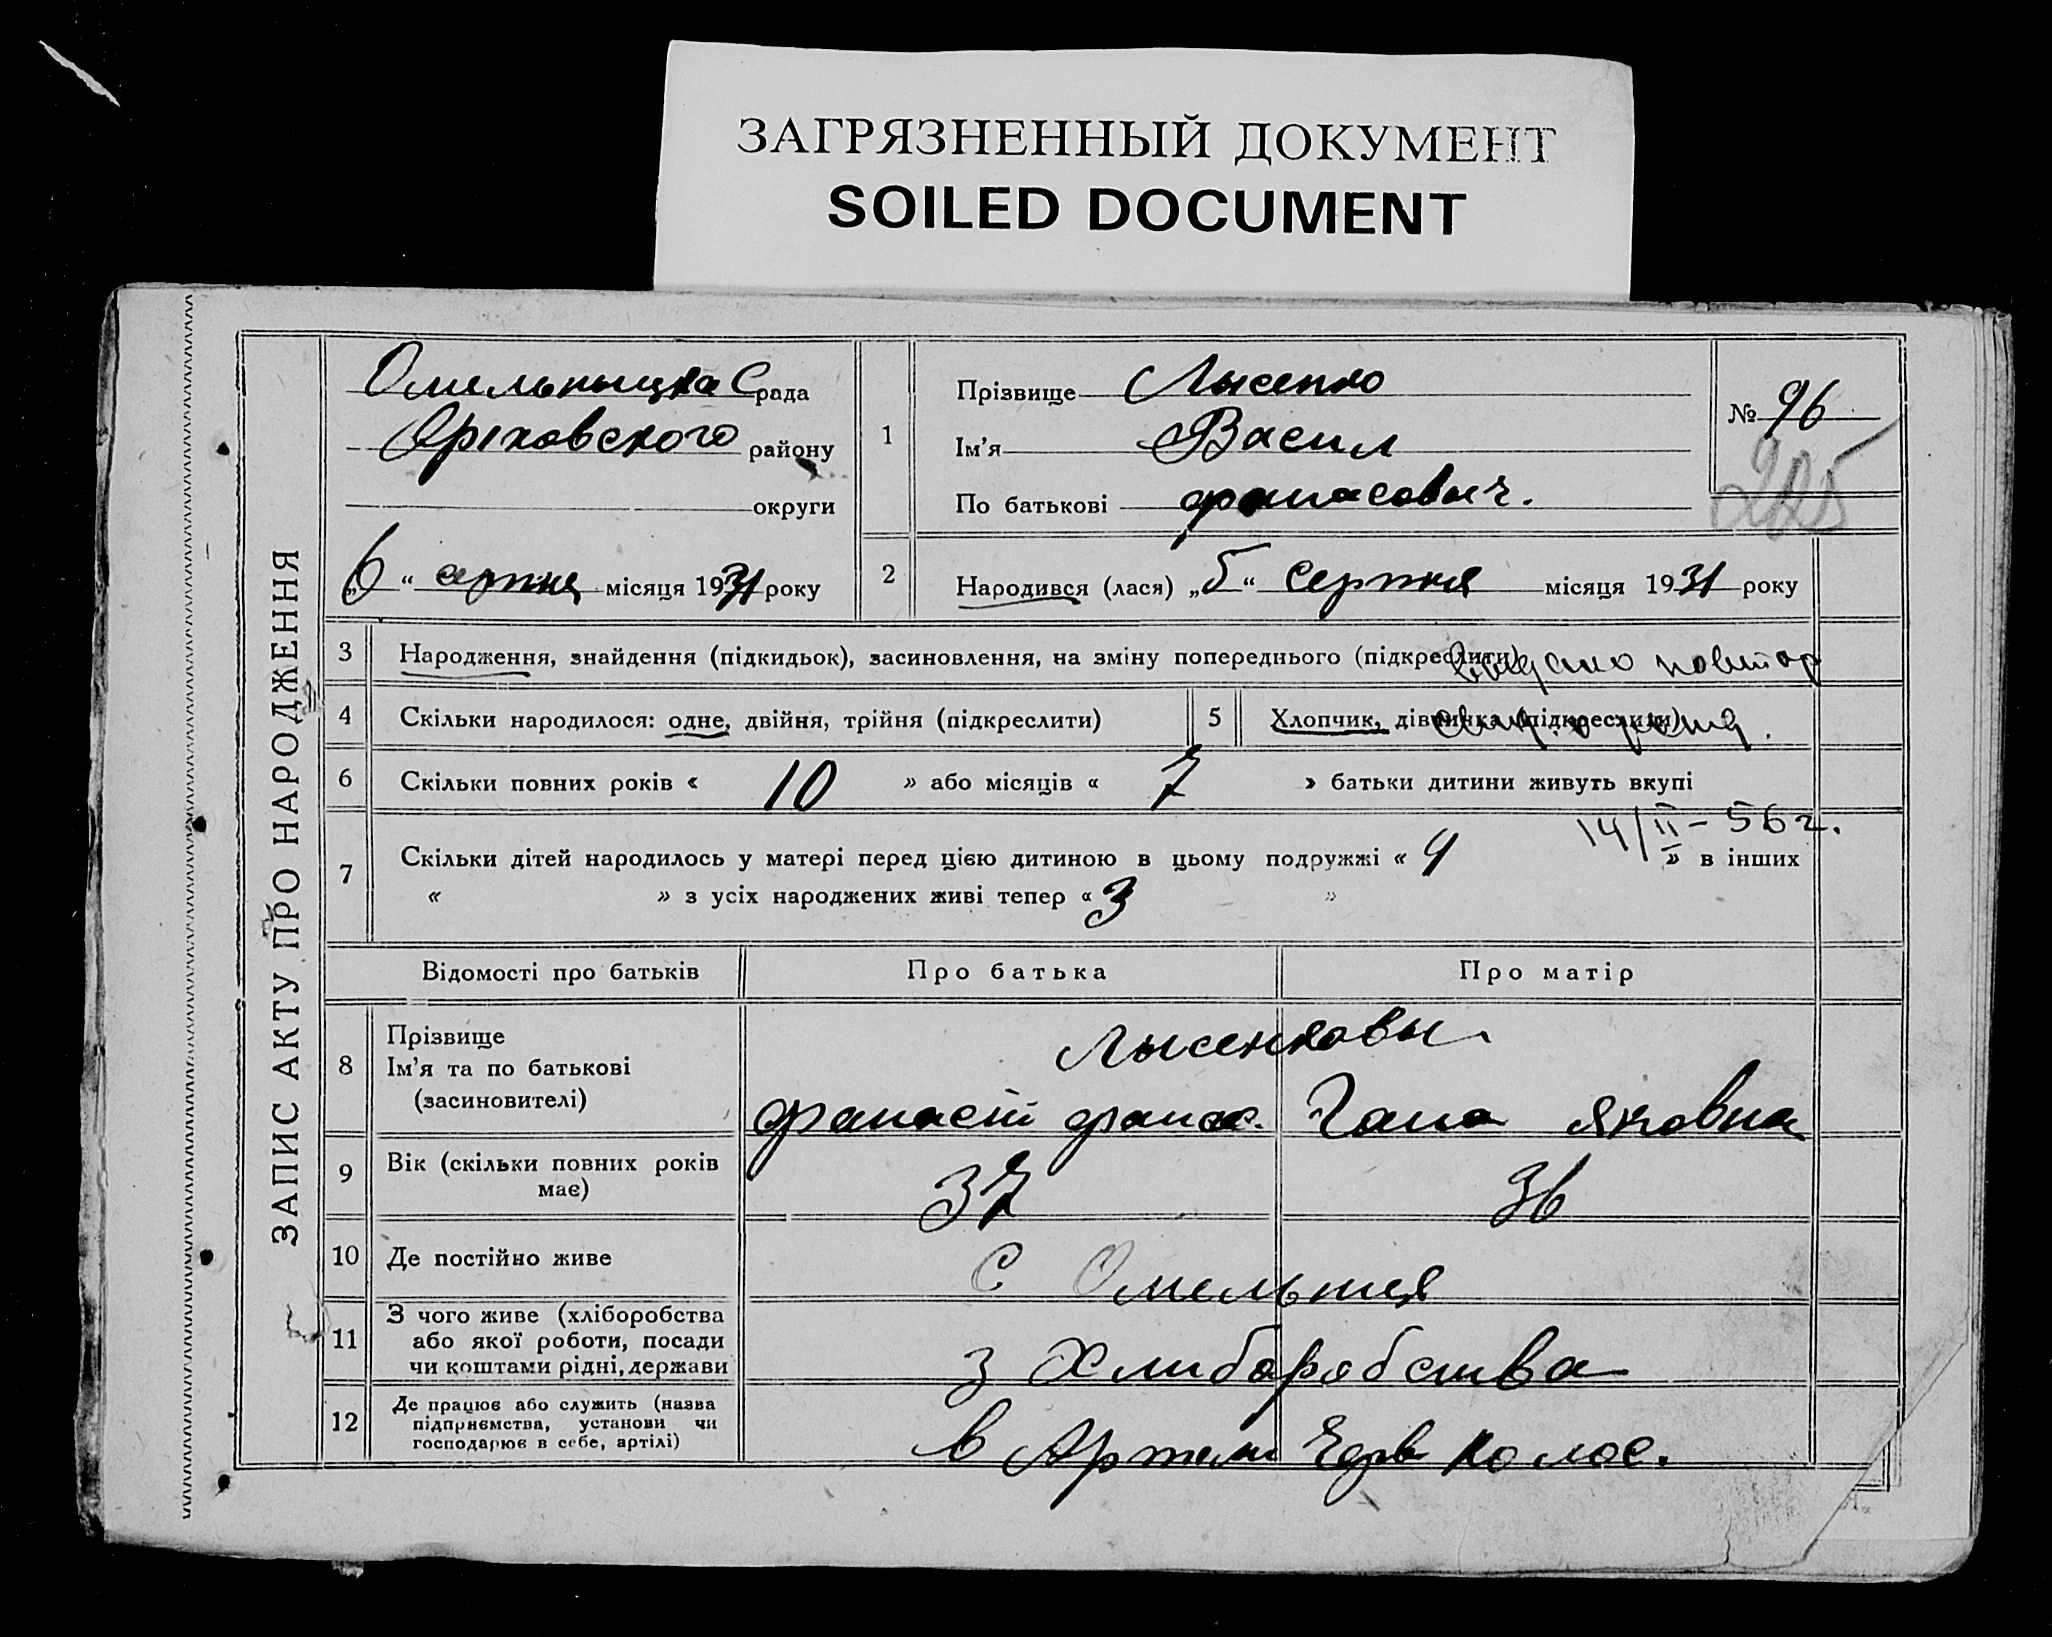 ЗАГРЯЗНЕННЫЙ ДОКУМЕНТ
SOILED DOCUMENT
ЗАПИС АКТУ ПРО НАРОДЖЕННЯ
Омельныцка С рада
Оріховського району
округи
„6“ серпня місяця 1931 року
1
Прізвище Лысенко
Ім'я Васил
По батькові фанасовыч.
№ 96
225
2
Народився (лася) „5“ Серпня місяця 1931 року
3 Народження, знайдення (підкидьок), засиновлення, на зміну попереднього (підкреслити)
видано повтор
4 Скільки народилося: одне, двійня, трійня (підкреслити)
5 Хлопчик, дівчинка (підкреслити)
6 Скільки повних років « 10 » або місяців « 7 » батьки дитини живуть вкупі
14/II-56г.
7 Скільки дітей народилось у матері перед цією дитиною в цьому подружжі « 4 » в інших
« » з усіх народжених живі тепер « 3 »
Відомості про батьків Про батька Про матір
8 Прізвище
Ім'я та по батькові
(засиновителі)
Лысенковы
фанасій фанас. Гана Яковна
9 Вік (скільки повних років має) 37 36
10 Де постійно живе С Омельныя
11 З чого живе (хліборобства
або якої роботи, посади
чи коштами рідні, держави
з Хлиборобства
12 Де працює або служить (назва
підприємства, установи чи
господарює в себе, артілі)
в Артели Колос.